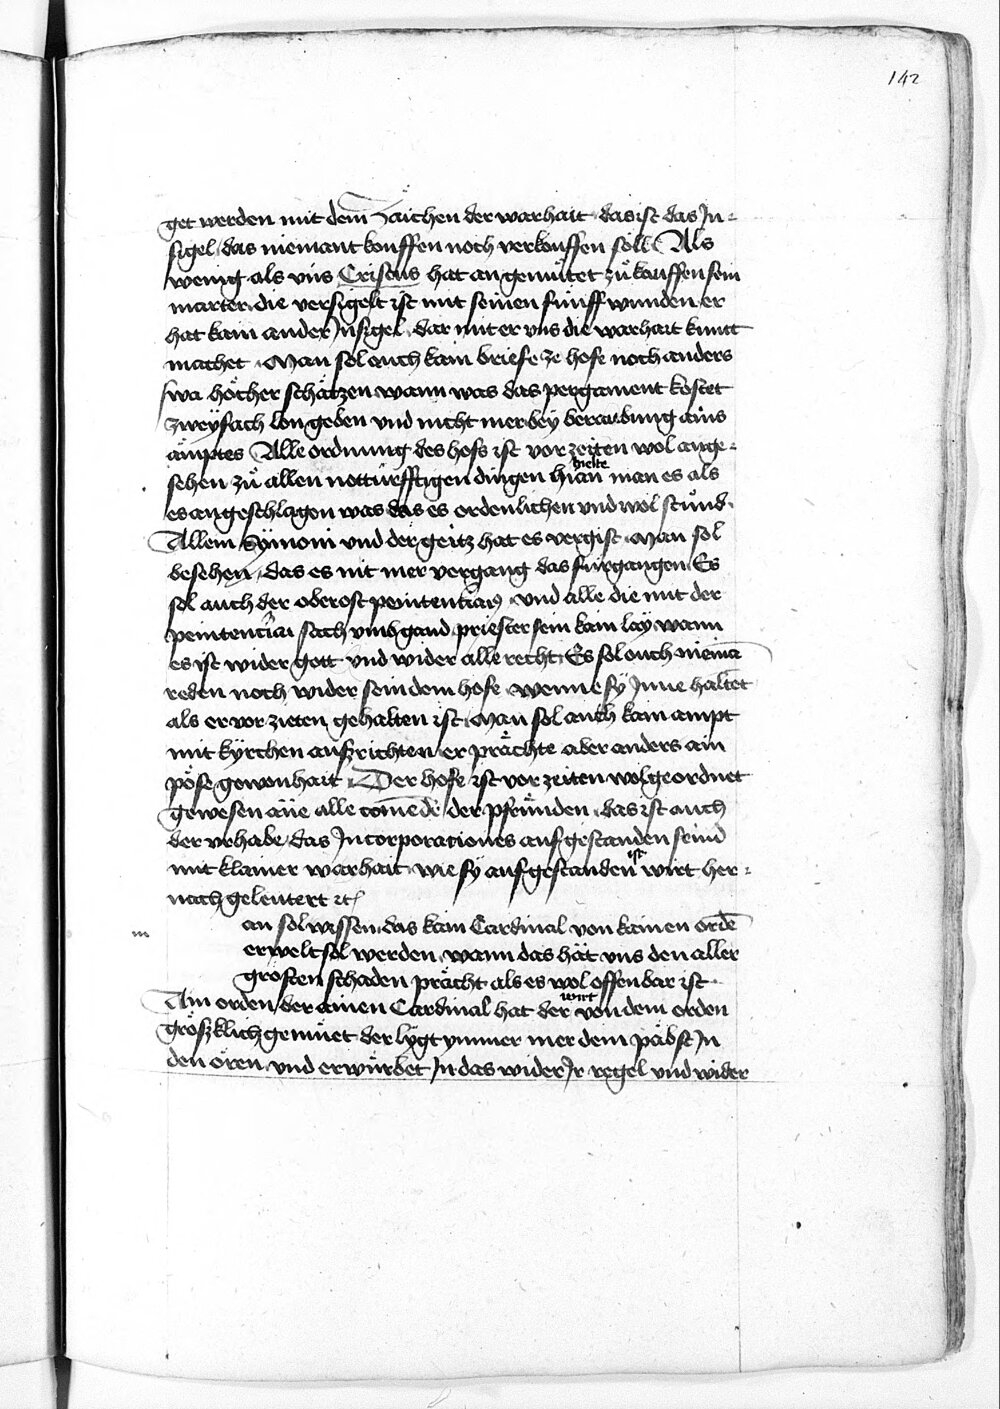 142
get werden mit dem zaichen der warhait · das ist das In=
sigel / das niemant kouffen noch verkouffen soll Als
wenig als vns Cristus hat an gemuͤtet zuͦ kauffen sein
marter die versigelt ist mit seinen fünff wunden er
hat kain ander Insigel dar mit er vns die warhait kuntt
machet · Man sol auch kain briefe ze hofe noch anders
swa hoͤcher schätzen wann was das pergament kostet
zweyfach lon geben vnd nicht mer bey beraubung ains
amptes Alle ordnung des hofs ist vor zeiten wol ange=
sehen zuͦ allen nottürfftigen dingen hian man es als
hielte
es angeschlagen was das es ordenlichen vnd wol stuͤnd ·
Allein Symoni vnd der geitz hat es vergift Man sol
besehen / das es nit mer vergang das fürgangen Es
sol auch der oberost penitentiarÿ · vnd alle die mit der
penitentiari sach vmb gand priester sein kain lay wann
es ist wider gott vnd wider alle recht Es sol ouch niemā
reden noch wider sein dem hofe wenne sy Inne haltet
als er vor zieten gehalten ist Man sol auch kain ampt
mit kyrchen auszrichten er prächte aber anders ain
poͤse gewonhait · Der hofe ist vor zeiten wol geordnet
gewesen ane alle comēde der pfruͤnden · das ist auch
der vrhabe / das Incorporationes auf gestanden seind
mit klainer warhait wie sy auf gestanden wirt her=
ist
nach geleutert ꝛc
m
an sol wissen das kain Cardinal von kainen ordē
erwelt sol werden wann das hät vns den aller
grosten schaden prächt als es wol offenbar ist ·
Ain orden der ainen Cardinal hat der von dem orden
wirt
gröszklich gemuͤet der lygt ymmer mer dem päbst In
den oren vnd erwürbet In das wider Ir regel vnd wider